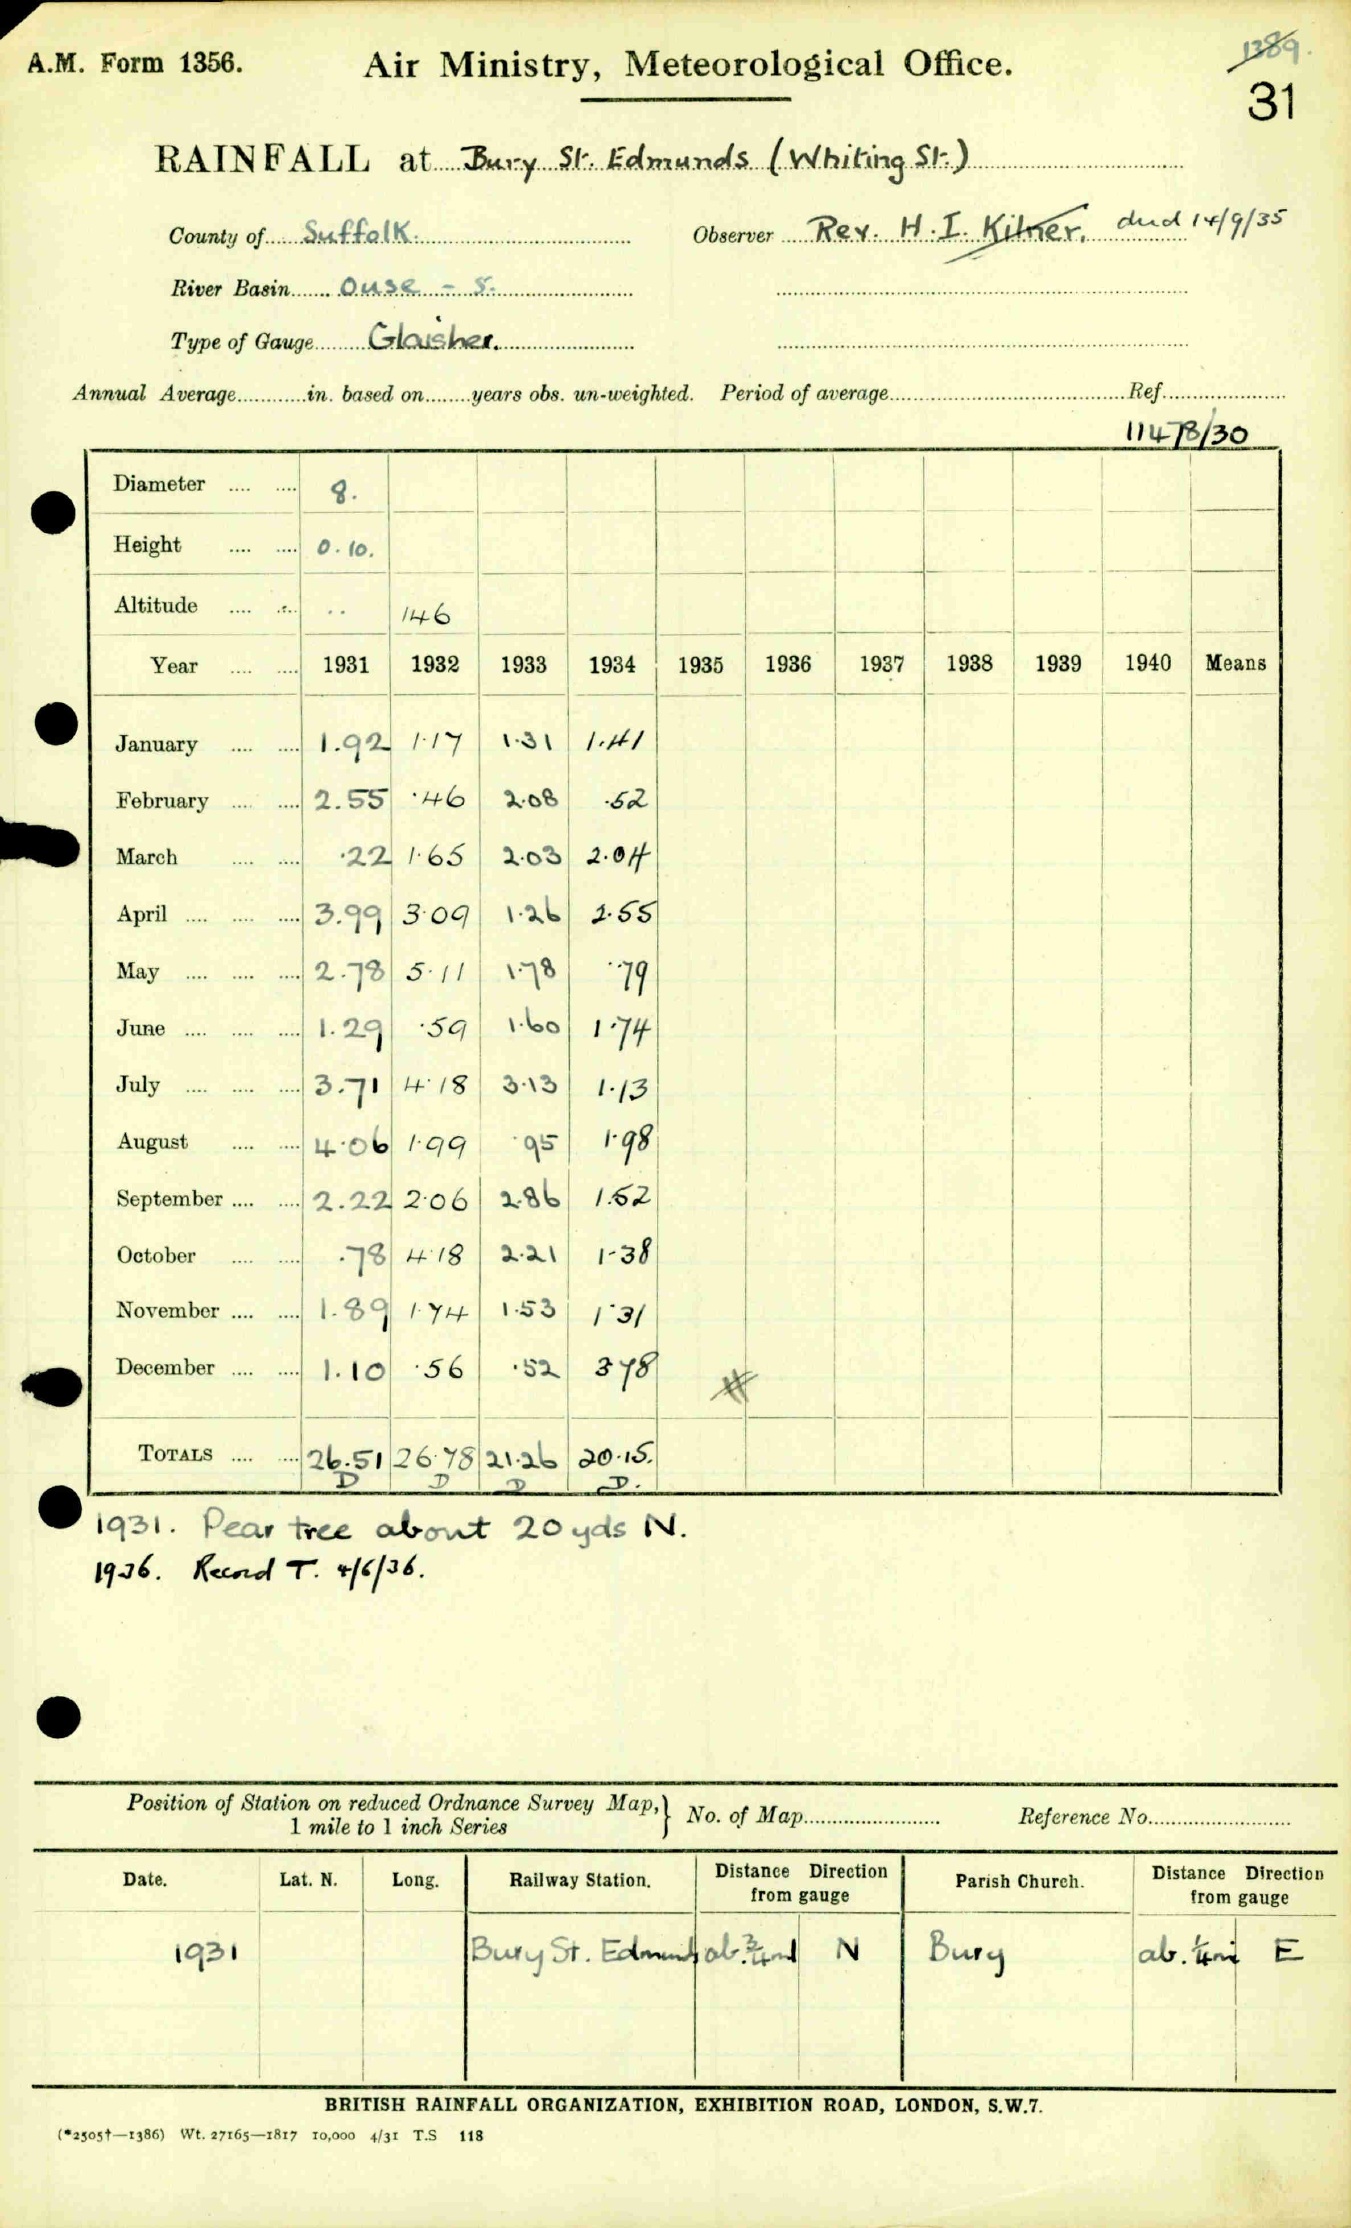 1389.
A.M. Form 1356. Air Ministry, Meteorological Office.
31
RAINFALL at Bury St. Edmunds (Whiting St.)
County of Suffolk. Observer Rev. H. I. Kilner. died 14/9/35
River Basin Ouse - 5.
Type of Gauge Glaisher.
Annual Average in. based on years obs. un-weighted. Period of average Ref.
11478/30
Diameter 8.
Height 0.10.
Altitude .. 146
Year 1931 1932 1933 1934 1935 1936 1937 1938 1939 1940 Means
January 1.92 1.17 1.31 1.41
February 2.55 .46 2.08 .52
March .22 1.65 2.03 2.04
April 3.99 3.09 1.26 2.55
May 2.78 5.11 1.78 .79
June 1.29 .59 1.60 1.74
July 3.71 4.18 3.13 1.13
August 4.06 1.99 .95 1.98
September 2.22 2.06 2.86 1.52
October .78 4.18 2.21 1.38
November 1.89 1.74 1.53 1.31
December 1.10 .56 .52 3.78
TOTALS 26.51 26.78 21.26 20.15.
D D D D.
1931. Pear tree about 20 yds N.
1936. Record T. 4/6/36.
Position of Station on reduced Ordnance Survey Map,} No. of Map Reference No.
1 mile to 1 inch Series
Date. Lat. N. Long. Railway Station. Distance Direction from gauge Parish Church. Distance Direction from gauge
1931 Bury St. Edmunds ab. 3/4 ml N Bury ab. 1/4 mi E
BRITISH RAINFALL ORGANIZATION, EXHIBITION ROAD, LONDON, S.W.7.
(*2505†—1386) Wt. 27165—1817 10,000 4/31 T.S 118